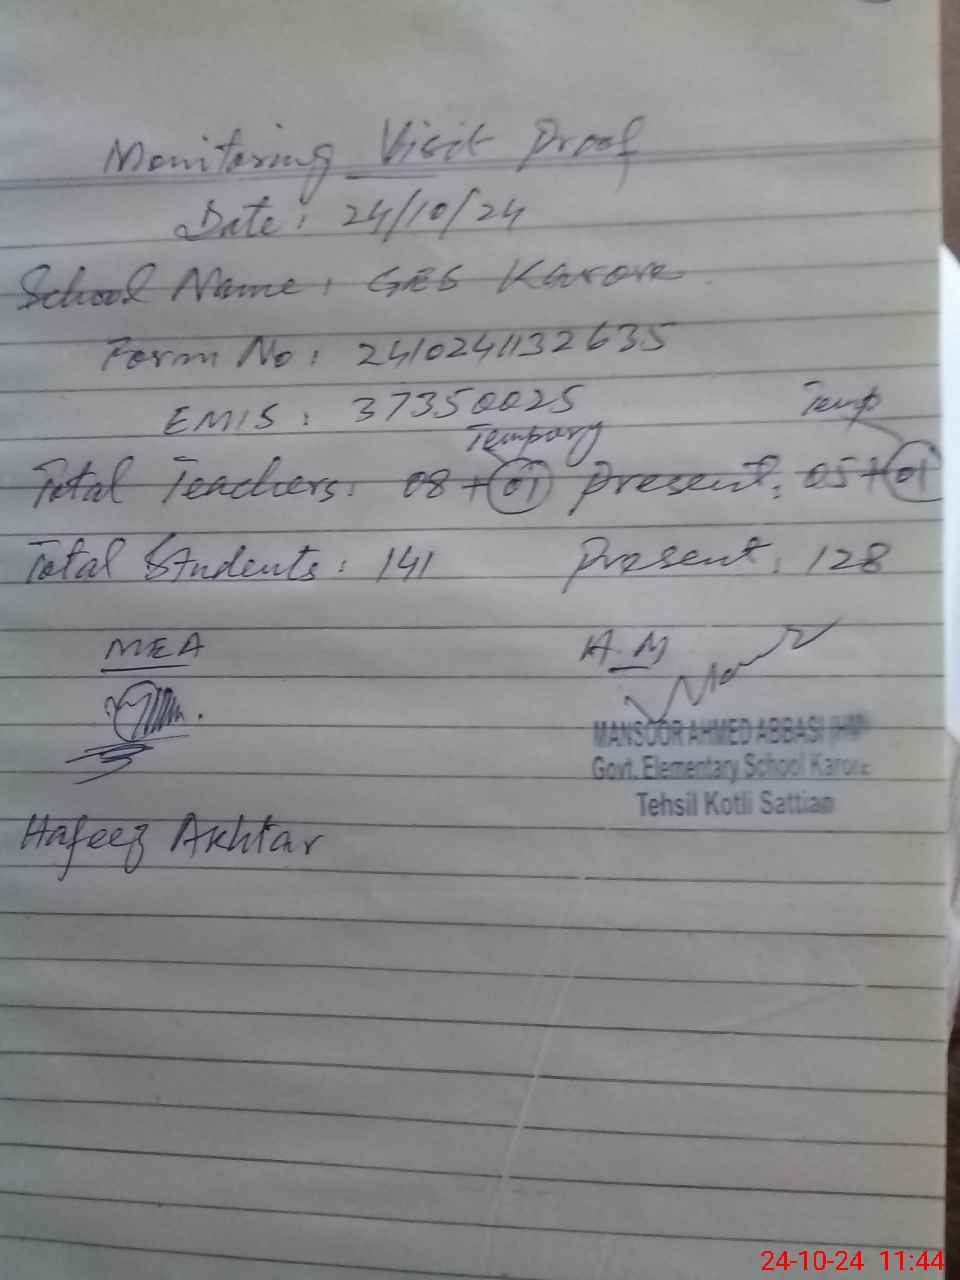 Monitoring Visit Proof
Date: 24/10/24
School Name: GES Karore.
Form No: 2410241132635
EMIS: 37350025
Tempary Temp
Total Teachers: 08 + 01 Present: 05 + 01
Total Students: 141 Present: 128
MEA H.M
MANSOOR AHMED ABBASI (HM)
Govt. Elementary School Karore
Tehsil Kotli Sattian
Hafeez Akhtar
24-10-24 11:44